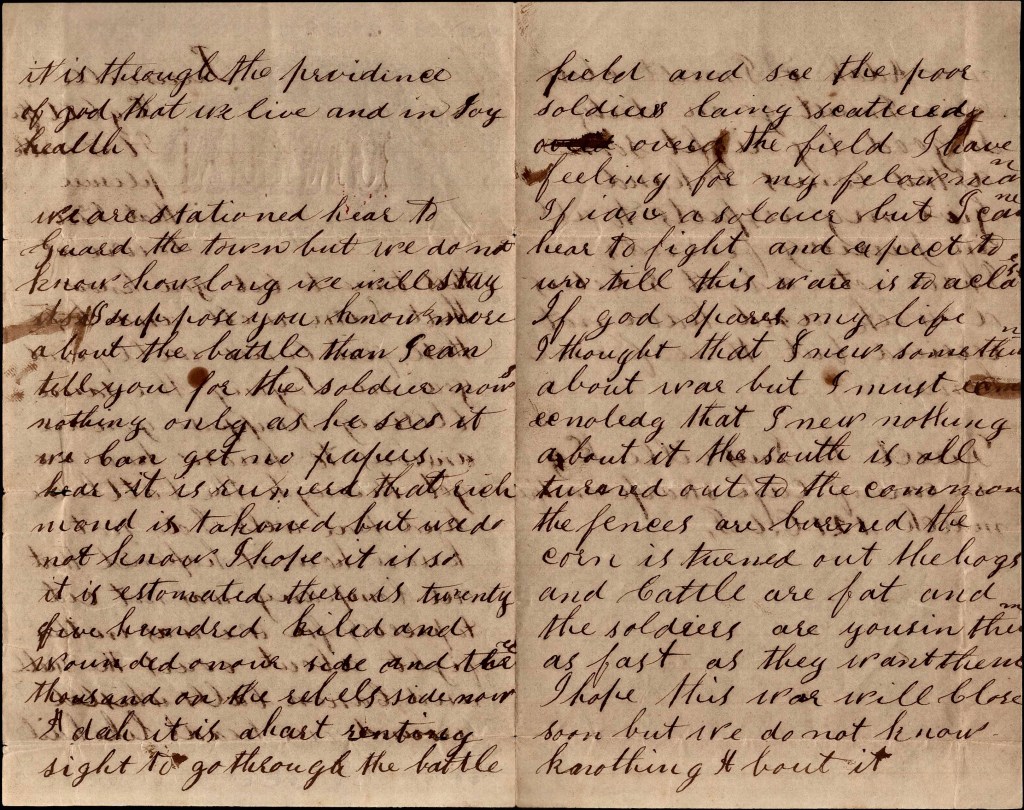 it is through the prvidince
of god that we live and in Joy
health
we are stationed hear to
Guard the town but we do not
know how long we will stay
I suppose you know more
about the battle than I can
tell you for the soldier nows
nothing only as he sees it
we Can get no papers
hear it is rumerd that rich
mond is takoned but we do
not know I hope it is so
it is estomated there is twenty
five hundred kiled and
wounded on our side and three
thousand on the rebels side now
A dah it is a hart renting
sight to go through the battle
field and see the poor
soldiers laing scattered
overd the field I have
feeling for my felowman
If i am a soldier but I came
hear to fight and expect to
till this ware is to a close
If god spares my life
I thought that I new somethin
about war but I must
cnoledg that I new nothing
about it the south is all
turned out to the common
the fences are burned the
corn is turned out the hogs
and Cattle are fat and
the soldiers are yousin them
as fast as they want them
I hope this war will Close
soon but we do not know
knothing A bout it